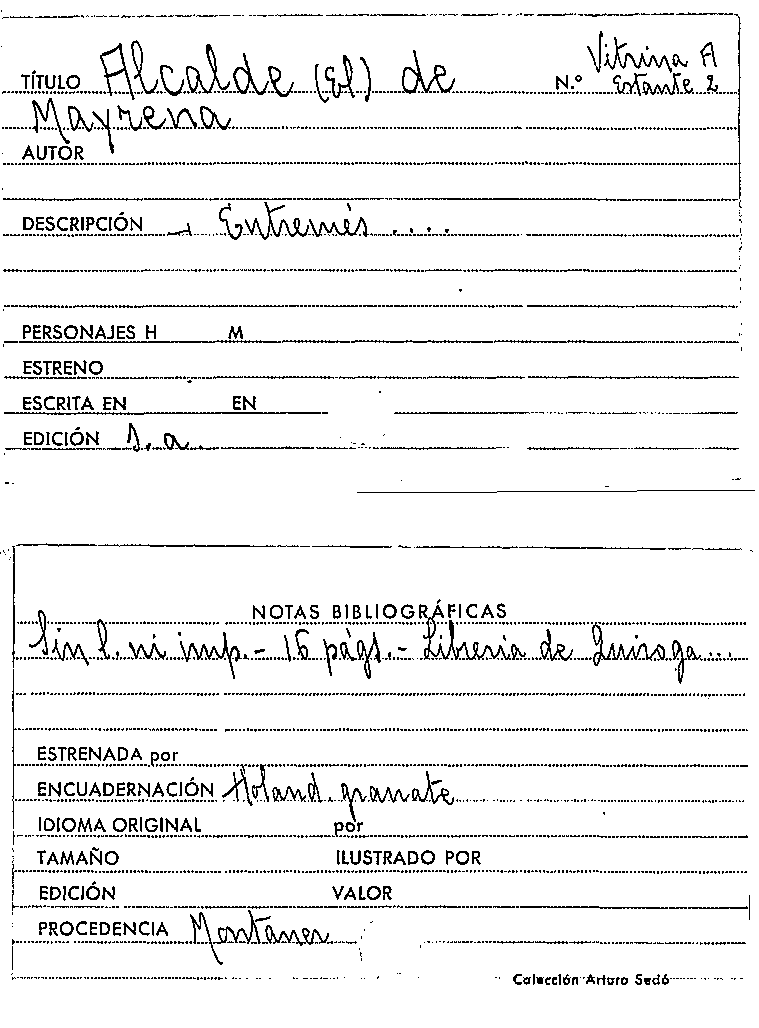 TÍTULO Alcalde (El) de N.º Vitrina A
Estante 2
Mayrena
AUTOR
DESCRIPCIÓN Entremés ....
PERSONAJES H M
ESTRENO
ESCRITA EN EN
EDICIÓN S. a.
NOTAS BIBLIOGRÁFICAS
Sin l. ni imp.- 16 págs.- Libreria de Quiroga...
ESTRENADA por
ENCUADERNACIÓN Holand. granate
IDIOMA ORIGINAL por
TAMAÑO ILUSTRADO POR
EDICIÓN VALOR
PROCEDENCIA Montaner
Colección Arturo Sedó